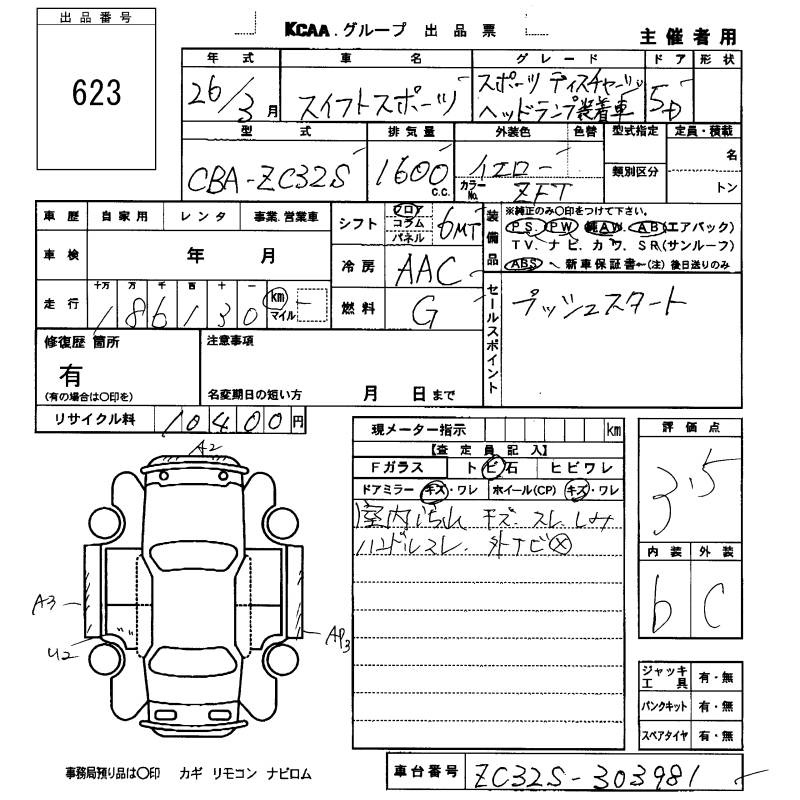 出品番号
623
KCAA.グループ 出品票
主催者用
年式 車名 グレード ドア 形状
26/3月 スイフトスポーツ スポーツ ディスチャージ 5D
ヘッドランプ装着車
型式 排気量 外装色 色替 型式指定 定員・積載
CBA-ZC32S 1600c.c. イエロー 名
カラーNo. ZFT 類別区分 トン
車歴 自家用 レンタ 事業.営業車
車検 年 月
走行 十万 万 千 百 十 一
186130 km マイル
シフト フロア コラム パネル 6MT
冷房 AAC
燃料 G
装備品
※純正のみ○印をつけて下さい。
P.S. PW 純AW. AB(エアバック)
TV. ナビ. カワ. SR(サンルーフ)
ABS 新車保証書←(注)後日送りのみ
セールスポイント
プッシュスタート
修復歴 箇所
有
(有の場合は○印を)
注意事項
名変期日の短い方 月 日まで
リサイクル料 10400円
現メーター指示 km
【査定員記入】
Fガラス トビ石 ヒビワレ
ドアミラー キズ・ワレ ホイール(CP) キズ・ワレ
室内汚れ キズ. スレ. しみ
ハンドルスレ. 外TEビ
評価点
3.5
内装 外装
b C
A2
A3
U2
AP3
ジャッキ工具 有・無
パンクキット 有・無
スペアタイヤ 有・無
事務局預り品は○印 カギ リモコン ナビロム
車台番号 ZC32S-303981